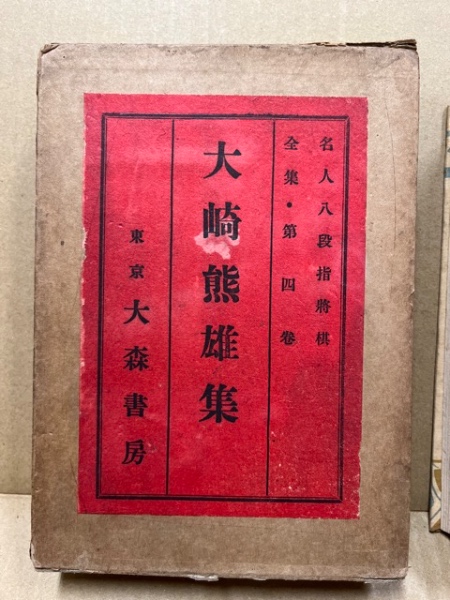 名人八段指將棋
全集・第四卷
大崎熊雄集
東京 大森書房